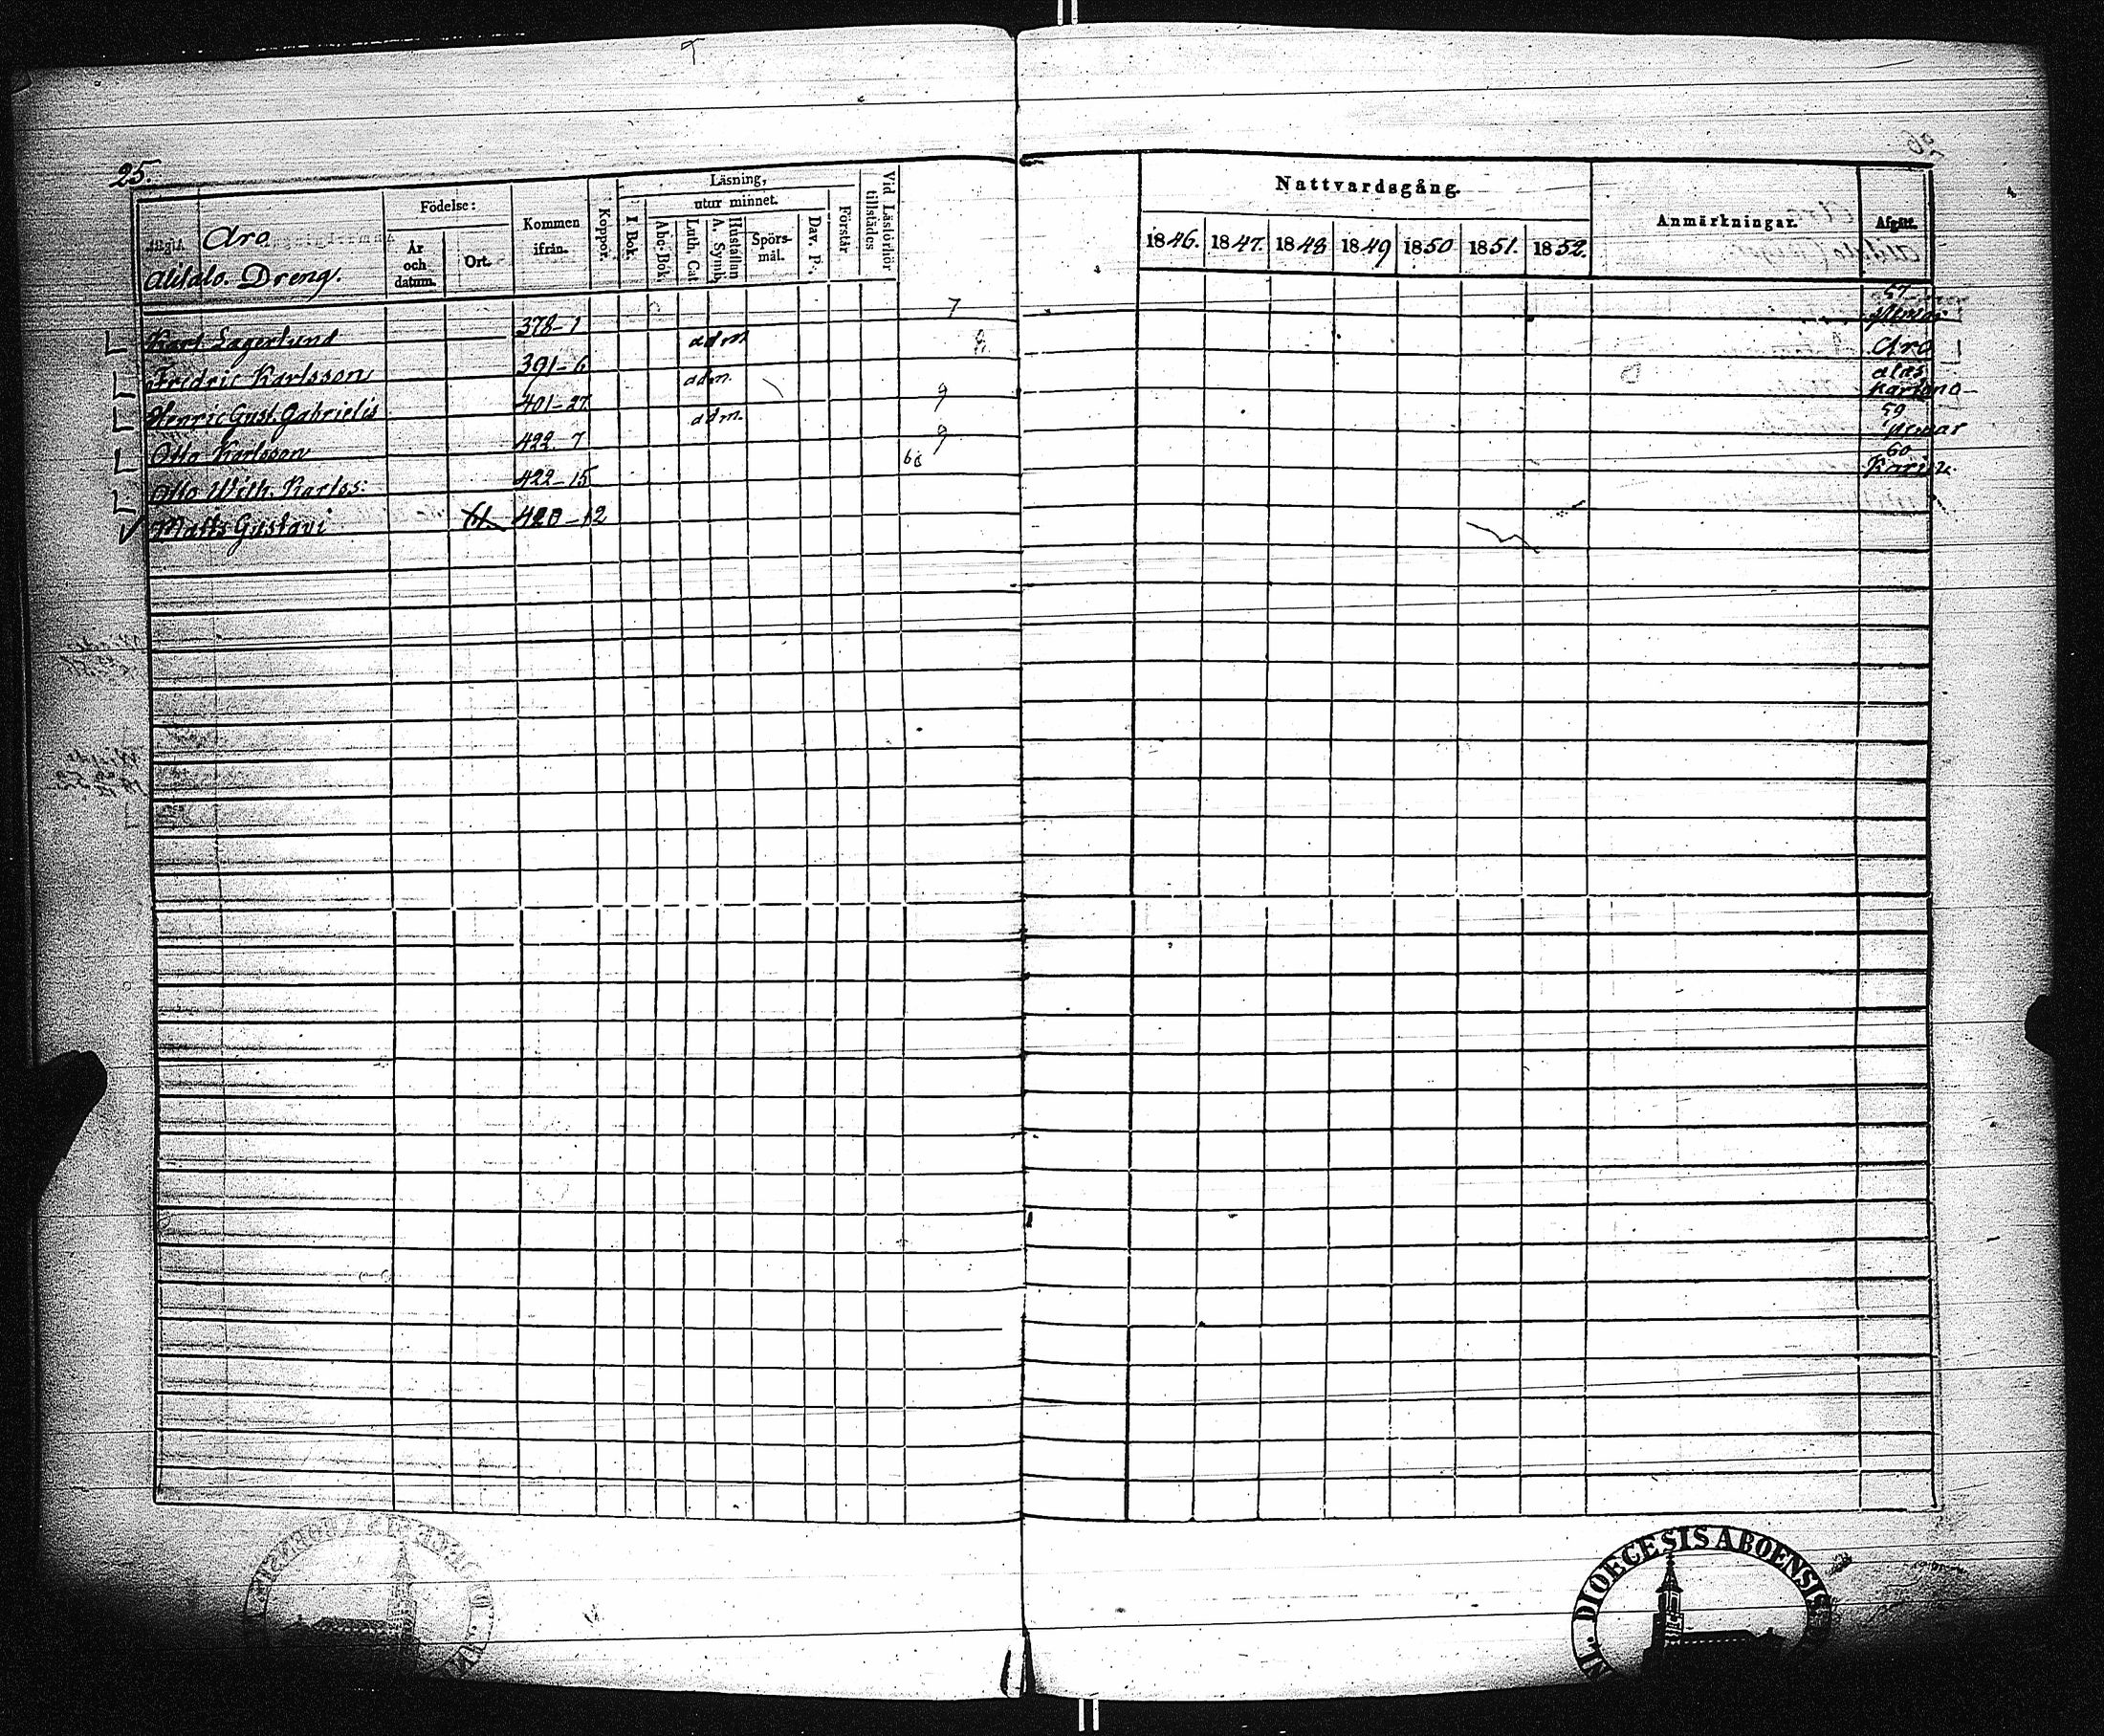 25.
Aro
Alitalo. Dreng.
Födelse:
År och datum.
Ort.
Kommen ifrån.
Koppor.
Läsning,
utur minnet.
I Bok.
Abc-Bok.
Luth. Cat.
Hustaflan A. Symb.
Spörs-mål.
Dav. Ps.
Förstår
Vid Läsförhör tillstädes
Nattvardsgång.
1846. 1847. 1848 1849 1850 1851. 1852.
Anmärkningar.
Afgått.
Karl Lagerlund 378-1 adm 7 57
Fredric Karlsson 391-6 adm. 8 Aro
Henric Gust. Gabrielis 401-27 adm. 9 alas Kartano
Otto Karlsson 422-7 9 59
Otto Wilh. Karlss: 422-15 60 60
Matts Gustavi 61 420-12
DIOECESIS ABOENSIS